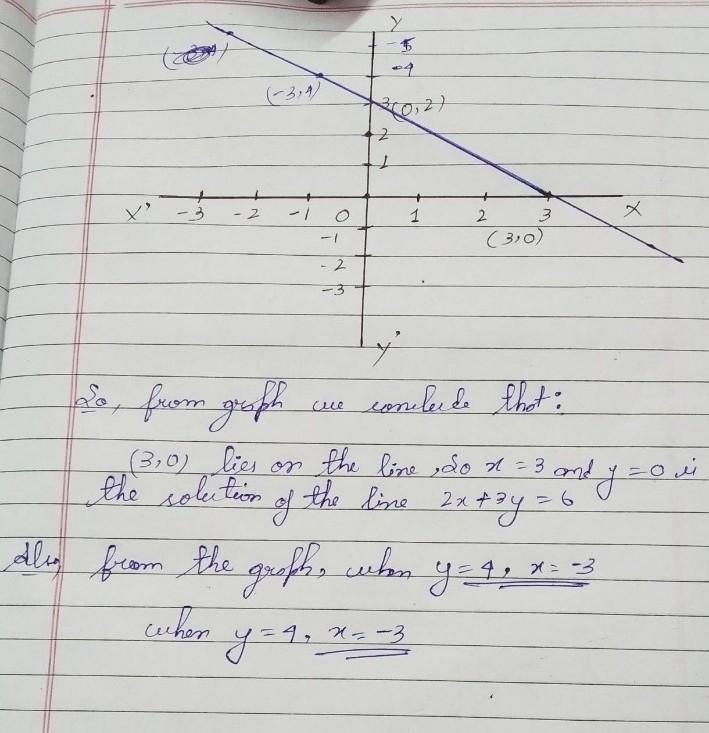 Y
5
-4
(-3,4)
3(0,2)
2
1
X' -3 -2 -1 0 1 2 3 X
-1 (3,0)
-2
-3
Y'
So, from graph we conclude that:
(3,0) lies on the line, So x = 3 and y = 0 is
the solution of the line 2x + 3y = 6
Also, from the graph, when y = 4, x = -3
when y = 4, x = -3